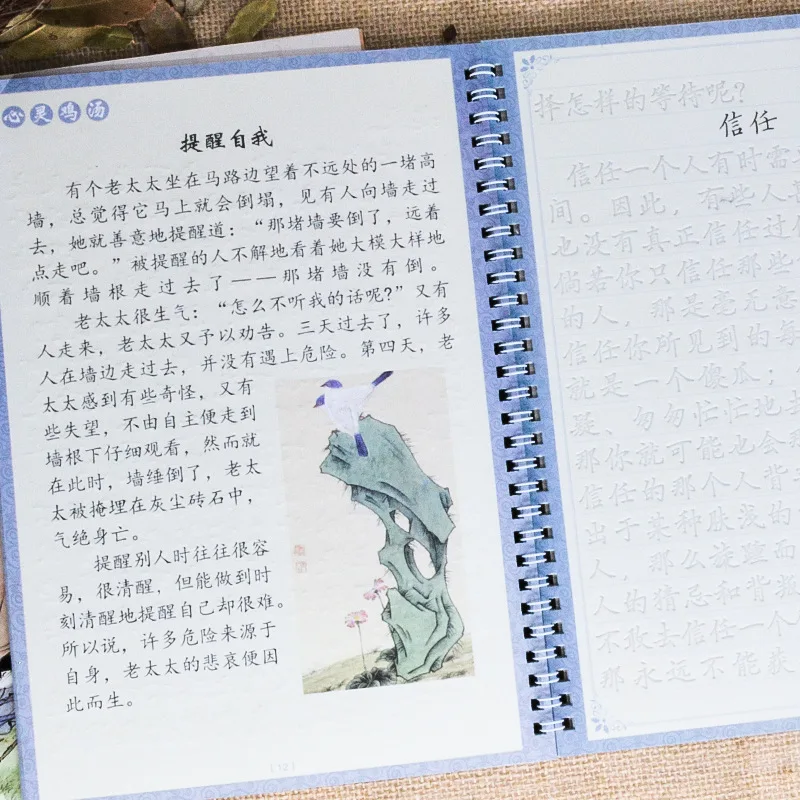 心灵鸡汤
提醒自我
有个老太太坐在马路边望着不远处的一堵高
墙，总觉得它马上就会倒塌，见有人向墙走过
去，她就善意地提醒道：“那堵墙要倒了，远着
点走吧。”被提醒的人不解地看着她大模大样地
顺着墙根走过去了——那堵墙没有倒。
老太太很生气：“怎么不听我的话呢?”又有
人走来，老太太又予以劝告。三天过去了，许多
人在墙边走过去，并没有遇上危险。第四天，老
太太感到有些奇怪，又有
些失望，不由自主便走到
墙根下仔细观看，然而就
在此时，墙缍倒了，老太
太被掩埋在灰尘砖石中，
气绝身亡。
提醒别人时往往很容
易，很清醒，但能做到时
刻清醒地提醒自己却很难。
所以说，许多危险来源于
自身，老太太的悲哀便因
此而生。
择怎样的等待呢?
信任
信任一个人有时需
间。因此，有些人
也没有真正信任过
倘若你只信任那些
的人，那是毫无意
信任你所见到的每
就是一个傻瓜，
疑、匆匆忙忙地
那你就可能也会
信任的那个人背
出于某种肤浅的
人，那么旋踵而
人的猜忌和背叛
不敢去信任一个
那永远不能获